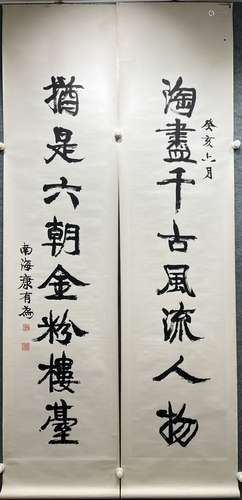 癸亥六月
淘盡千古風流人物
猶是六朝金粉樓臺
南海康有為